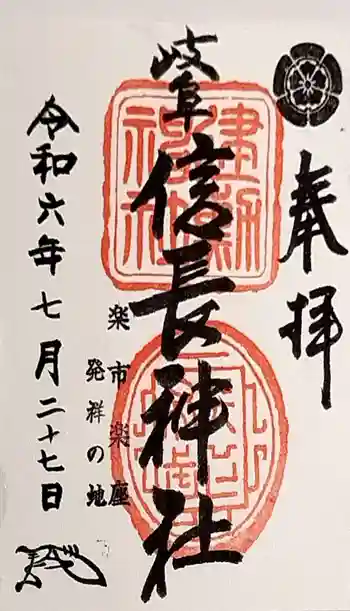 奉拝
岐阜
信長神社
建勲神社
楽市楽座
発祥の地
令和六年七月二十七日